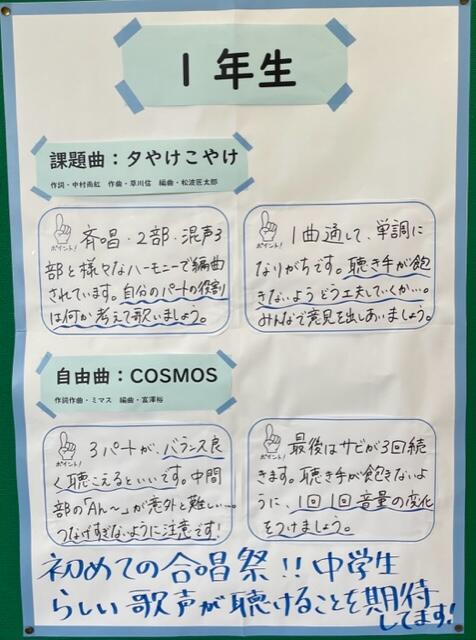 1年生
課題曲：夕やけこやけ
作詞・中村雨紅　作曲・草川信　編曲・松波匠太郎
ポイント!
斉唱・2部・混声3
部と様々なハーモニーで編曲
されています。自分のパートの役割
は何か考えて歌いましょう。
ポイント!
1曲通して、単調に
なりがちです。聴き手が飽
きないようどう工夫していくか…。
みんなで意見を出しあいましょう。
自由曲：COSMOS
作詞作曲・ミマス　編曲・富澤裕
ポイント!
3パートが、バランス良
く聴こえるといいです。中間
部の「Ah〜」が意外と難しい…。
つなげすぎないように注意です!
ポイント!
最後はサビが3回続
きます。聴き手が飽きないよう
に、1回1回音量の変化
をつけましょう。
初めての合唱祭!! 中学生
らしい歌声が聴けることを期待
してます!